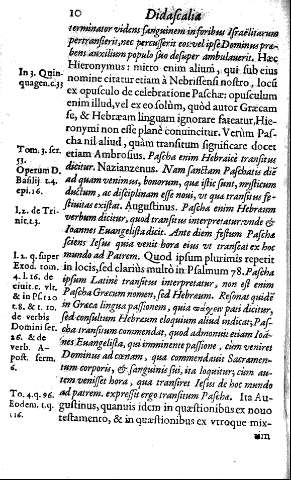 10 Didascalia
terminator videns sanguinem in foribus Israëlitarum
pertransieris, nec percusserit eos: vel ipse Dominus præ-
bens auxilium populo suo desuper ambulaverit. Hæc
Hieronymus: mitto enim alium, qui sub eius
nomine citatur etiam à Nebrissensi nostro, loci
ex opusculo de celebratione Paschæ: opusculum
enim illud, vel ex eo solùm, quòd autor Græcam
se, & Hebræam linguam ignorare fateatur, Hie-
ronymi non esse planè convincitur. Verùm Pas-
cha nil aliud, quàm transitum significare docet
etiam Ambrosius. Pascha enim Hebraicè transitus
dicitur. Nazianzenus. Nam sanctam Paschatis diē
ad quam venimus, bonorum, que istic sunt, mysticum
ductum, ac disciplinam esse noui, vt qua transitus fe-
stiuitas existat. Augustinus. Pascha enim Hebræum
verbum dicitur, quod transitus interpretatur: vnde &
Ioannes Euangelista dicit. Ante diem festum Pascha
sciens Iesus quia venit hora eius vt transeat ex hoc
mundo ad Patrem. Quod ipsum plurimis repetit
in locis, sed clariùs multò in Psalmum 78. Pascha
ipsum Latinè transitus interpretatur, non est enim
Pascha Græcum nomen, sed Hebræum. Resonat quidē
in Græca lingua passionem, quia πάσχειν pati dicitur,
sed consultum Hebræum eloquium aliud indicat; Pas-
cha transitum commendat, quod admonuit etiam Ioā-
nes Euangelista, qui imminente passione, cùm veniret
Dominus ad cœnam, qua commendauit Sacramen-
tum corporis, & sanguinis sui, ita loquitur; cùm au-
tem venisset hora, qua transiret Iesus de hoc mundo
ad patrem. expressit ergo transitum Pascha. Ita Au-
gustinus, quamuis idem in quæstionibus ex nouo
testamento, & in quæstionibus ex vtroque mix-
tim
In 3. Quin-
quagen. c. 33
Tom. 3. ser.
53.
Operum D.
Basilij t. 4.
epi. 16.
l. 2. de Tri-
nit. t. 3.
l. 2. q. super
Exod. tom.
4. l. 16. de
ciuit. c. vlt.
& in Ps. 120
t. 8. & t. 10.
de verbis
Domini ser.
26. & de
verb. A-
post. serm.
6.
To. 4. q. 96.
Eodem. t. q.
116.